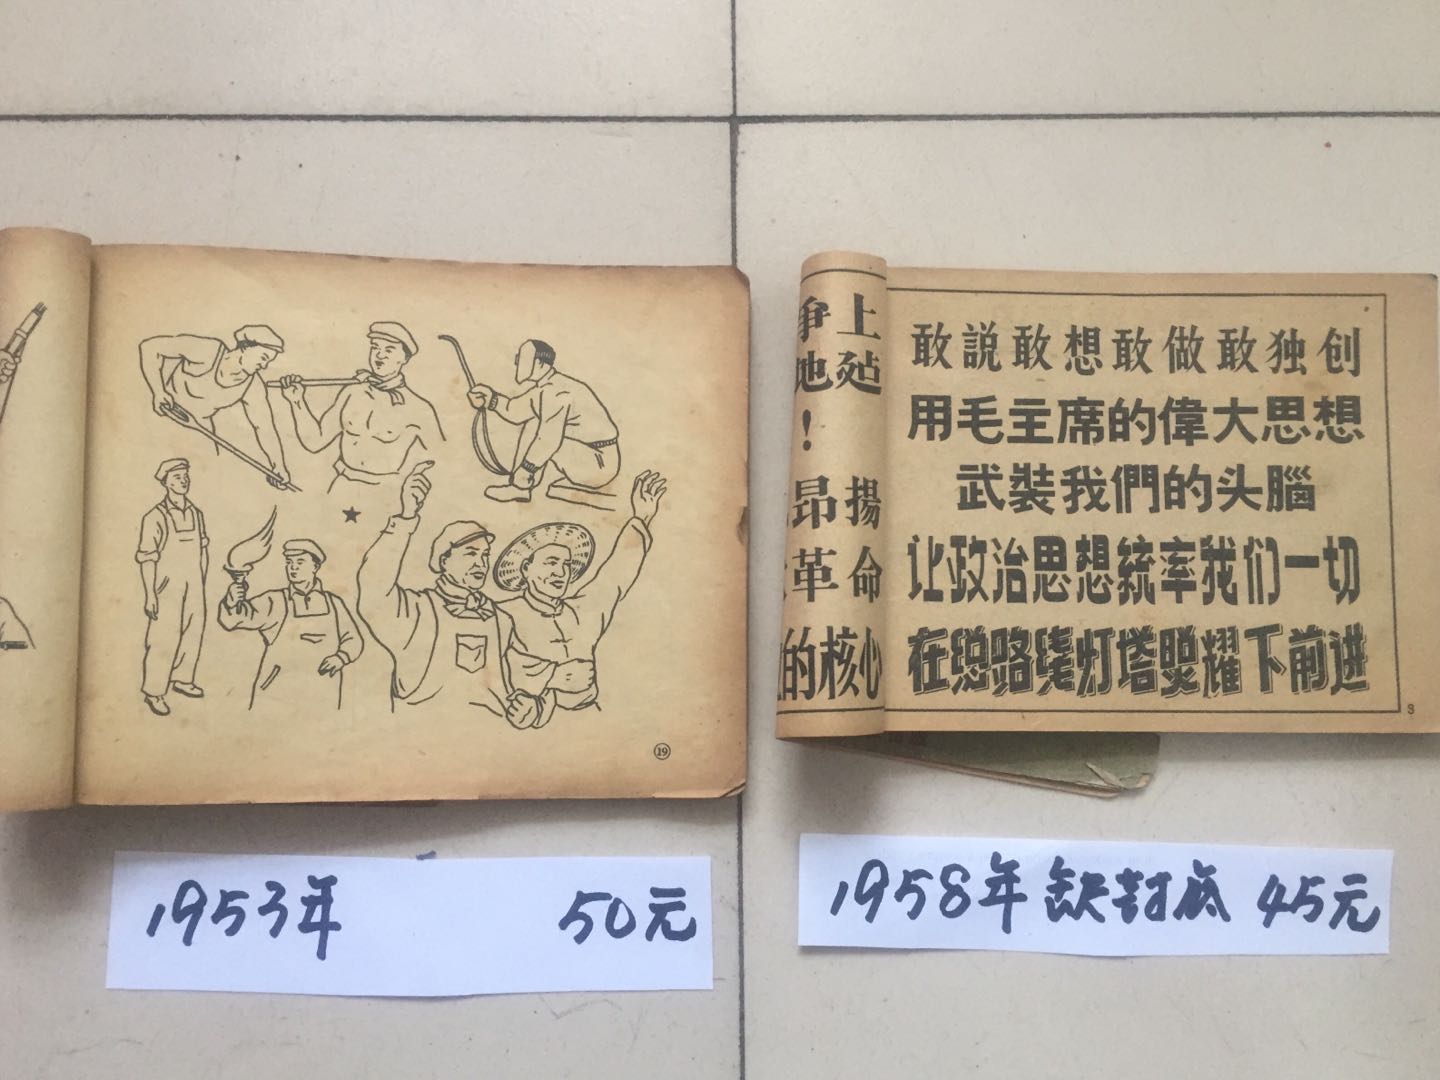 ⑲
1953年 50元
上
争
地
！
昂揚
革命
的核心
敢説敢想敢做敢独创
用毛主席的偉大思想
武裝我們的头腦
让政治思想統率我们一切
在总路线灯塔照耀下前进
3
1958年缺封底 45元